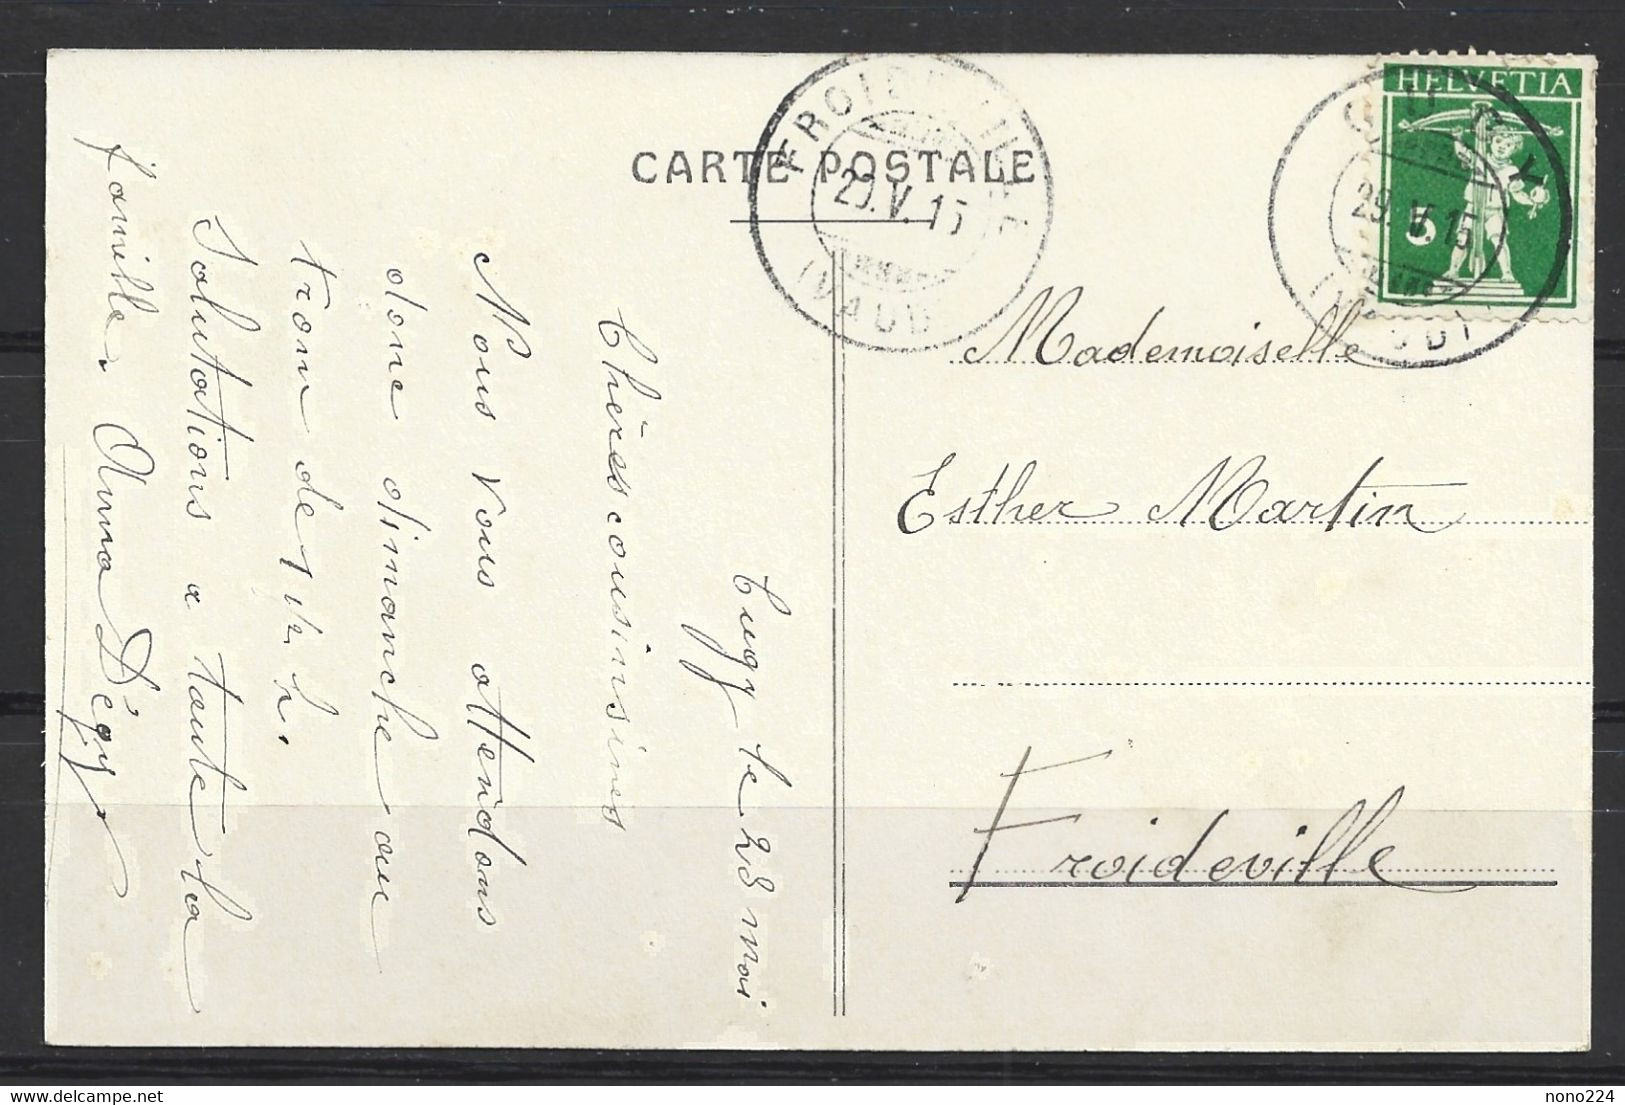 CARTE POSTALE
FROIDEVILLE
29.V.15
(VAUD)
HELVETIA
5
CUGY
29.V.15
(VAUD)
Mademoiselle
Esther Martin
Froideville
Cugy le 28 mai
Chères cousinsines
Nous vous attendons
donc dimanche au
tram de 1 1/2 h.
Salutations a toute la
famille. Anna Dégy
nono224